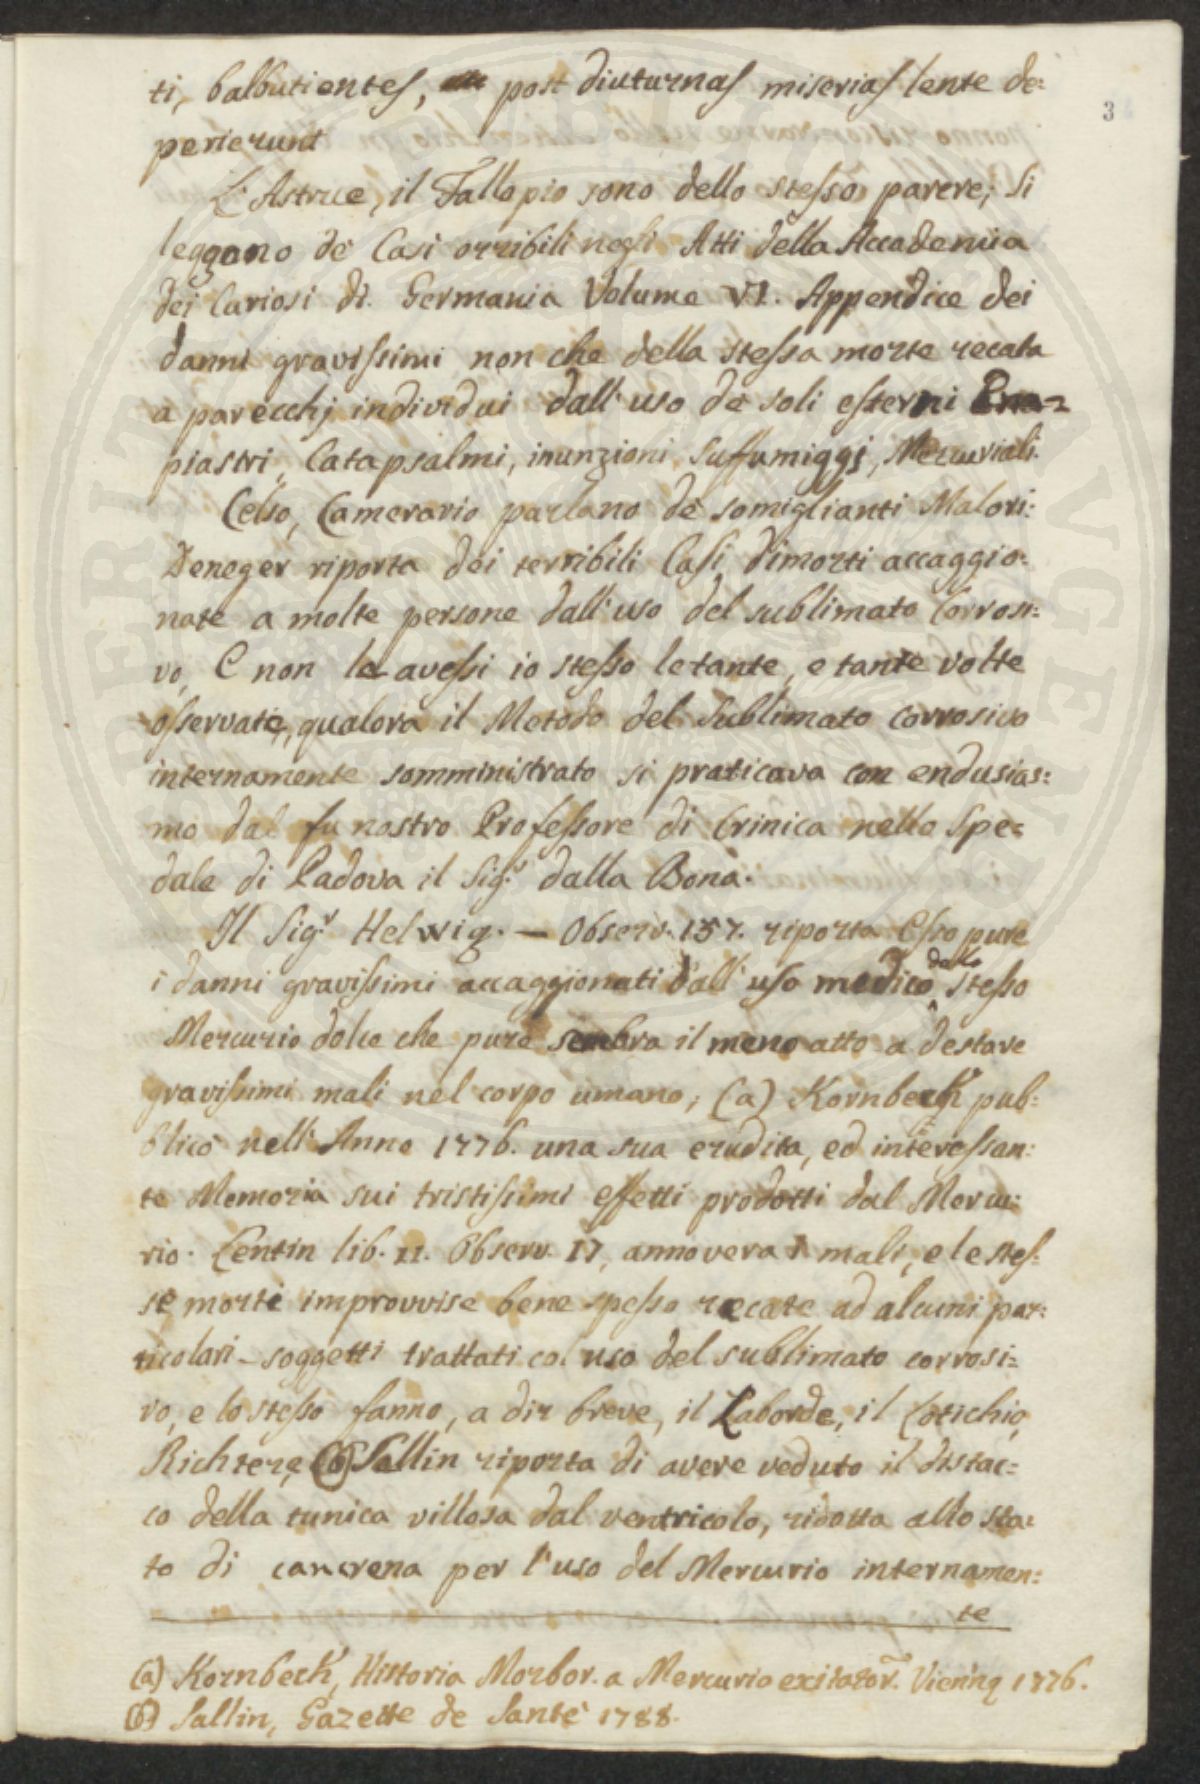 3
ti, balbutientes, post diuturnas miserias lente de:
perierunt
L'Astruc, il Falloppio sono dello stesso parere; si
leggono de Casi orribili negli Atti della Accademia
dei Cariosi di Germania Volume VI. Appendice dei
danni gravissimi non che della stessa morte recata
a parecchj individui dall'uso de soli esterni Em=
piastri, Catapsalmi, inunzioni, suffumiggj, Mercuriali.
Celso, Camerario parlano de somiglianti Malori:
Deneger riporta dei terribili Casi dimorti accaggio:
nate a molte persone dall'uso del sublimato Corrosi:
vo, E non le avessi io stesso le tante, e tante volte
osservate, qualora il Metodo del Sublimato corrosivo
internamente somministrato si praticava con endusias:
mo dal fu nostro Professore di Crinica nello Spe=
dale di Padova il Sig.r dalla Bona.
Il Sig.r Helwig. — Observ. 157. riporta Esso pure
i danni gravissimi accaggionati dall'uso medico dallo stesso
Mercurio dolce che pure sembra il meno atto a destare
gravissimi mali nel corpo umano; (a) Kornbeck pub:
blicò nell'Anno 1776. una sua erudita, ed interessan:
te Memoria sui tristissimi effetti prodotti dal Mercu:
rio. Lentin lib. II. Observ. 17, annovera i mali, e le stes:
se morte improvvise bene spesso recate ad alcuni par:
ticolari soggetti trattati col uso del sublimato corrosi=
vo, e lo stesso fanno, a dir breve, il Laborde, il Lotichio,
Richtere, (b) Sallin riporta di avere veduto il distac=
co della tunica villosa dal ventricolo, ridotta allo sta:
to di cancrena per l'uso del Mercurio internamen:
te
(a) Kornbeck, Historia Morbor. a Mercurio exitator. Vienna 1776.
(b) Sallin, Gazette de Santè 1788.